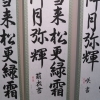 来松更緑霜
月弥輝
来松更緑霜
月弥輝